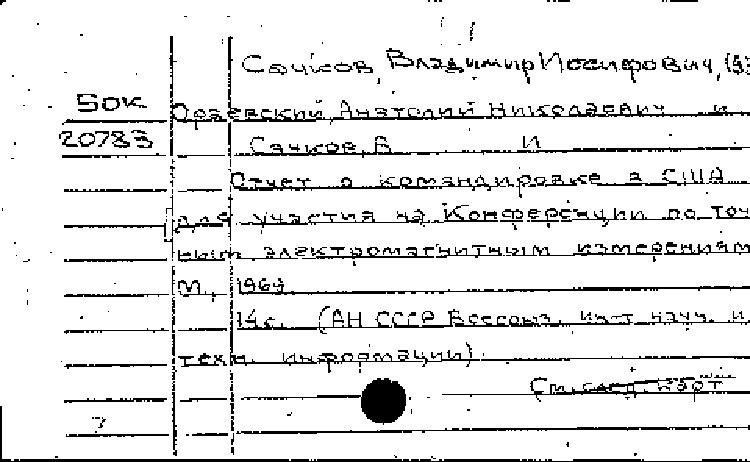 Сачков, Владимир Иосифович, 193
50К Ораевский, Анатолий Николаевич и
20783 Сачков, В И
Отчет о командировке в США
для участия на Конференции по точ
ным электромагнитным измерениям
М., 1969
14с. (АН СССР Всесоюз. ин-т науч. и
техн. информации)
См. след. карт
?